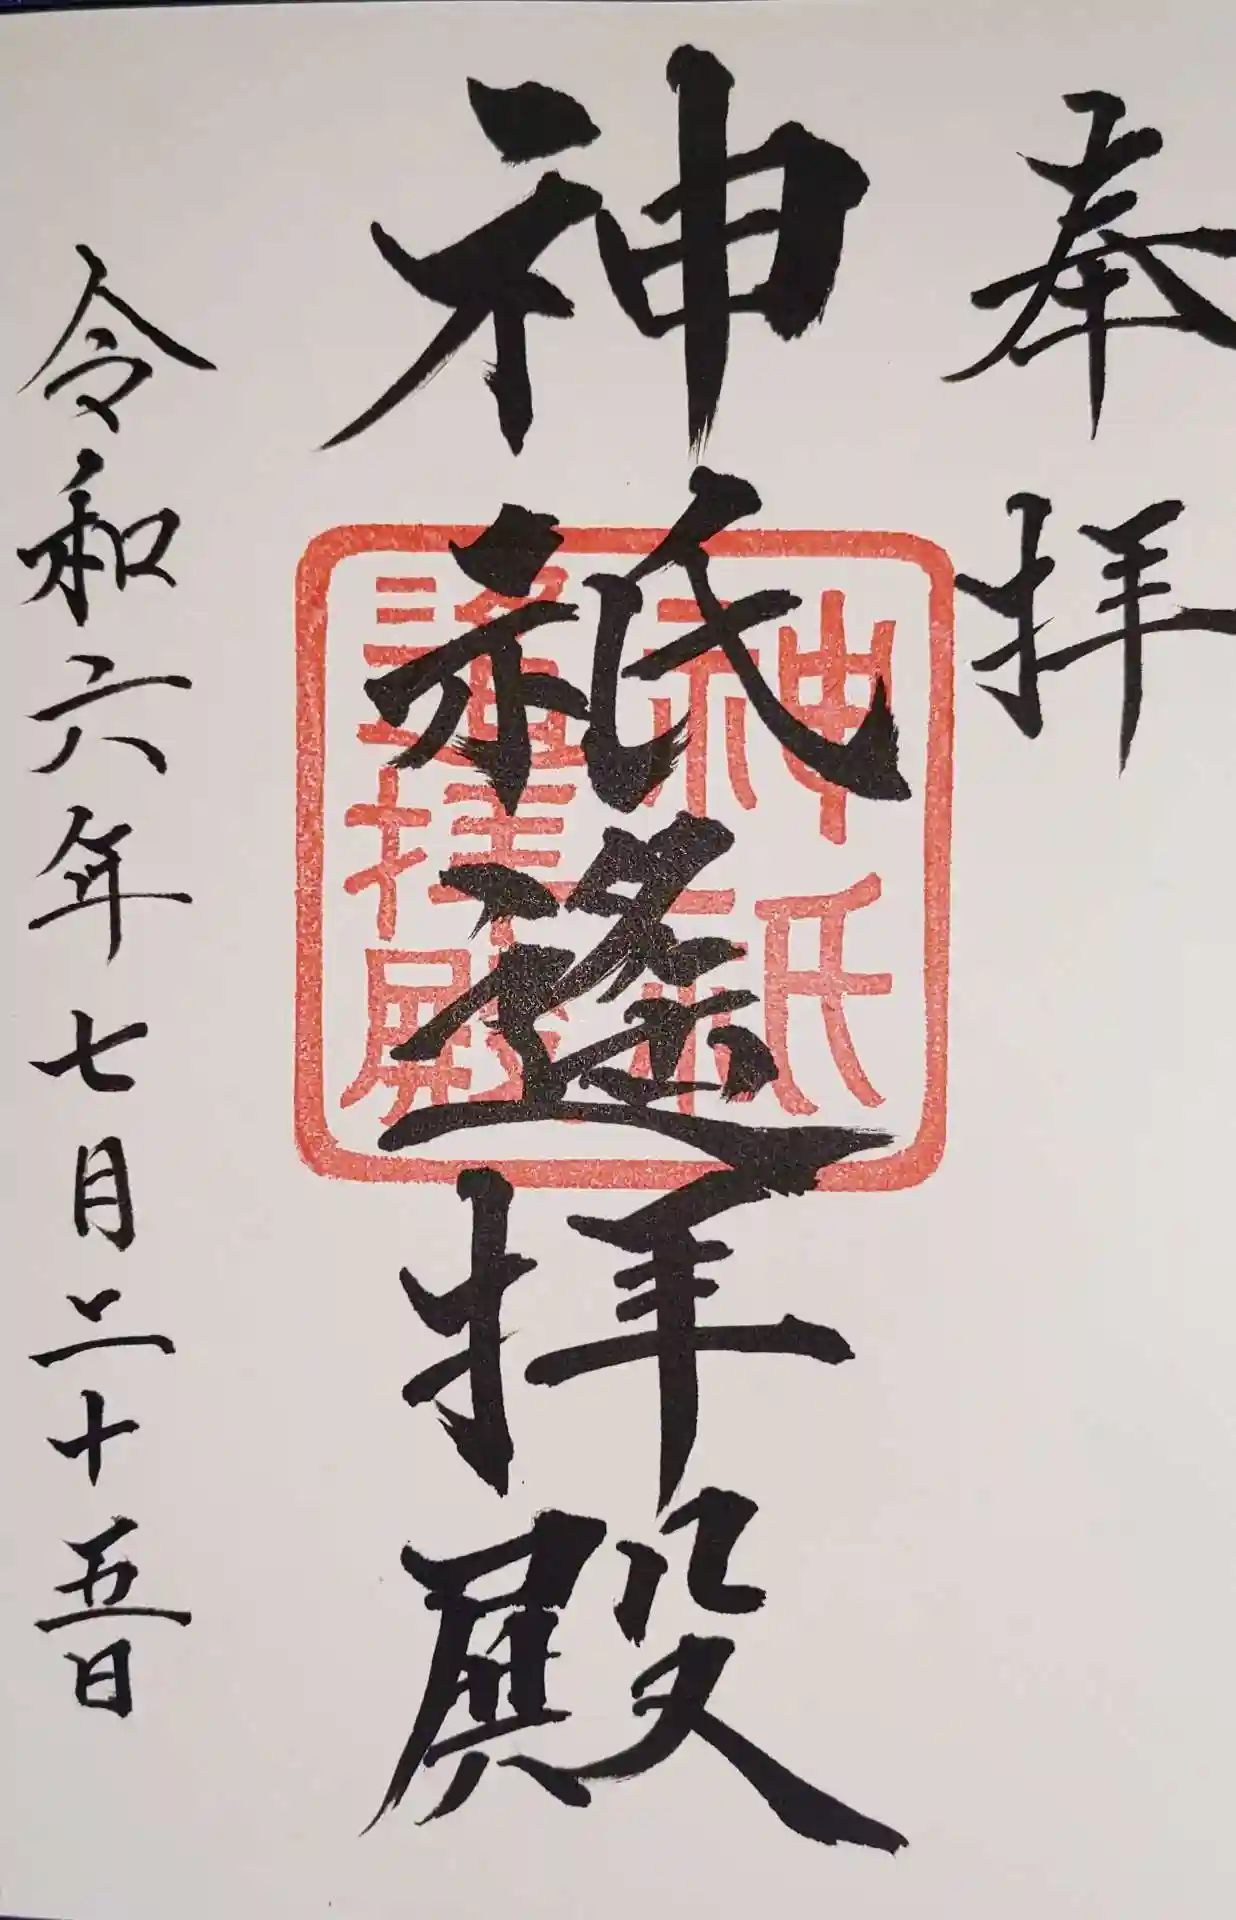 奉拝
神祇遥拝殿
神祇
遥拝殿
令和六年七月二十五日